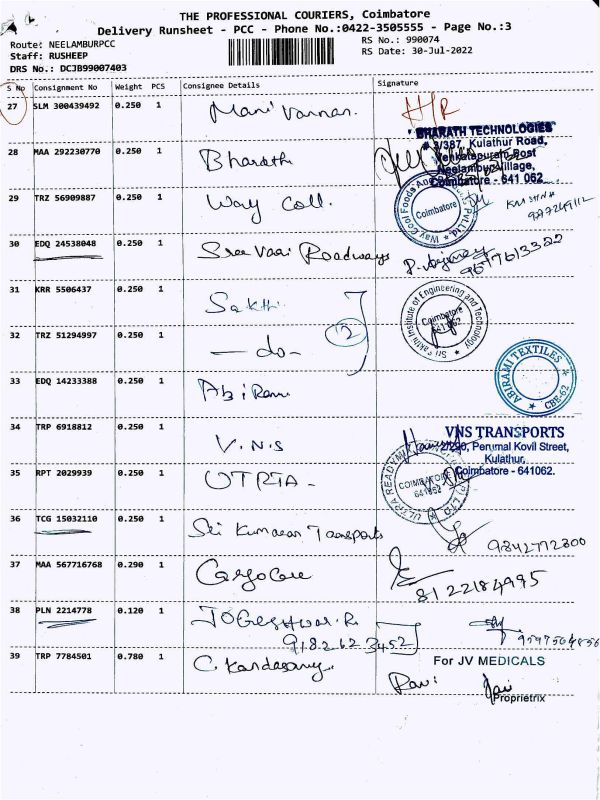 THE PROFESSIONAL COURIERS, Coimbatore
Delivery Runsheet - PCC - Phone No.:0422-3505555 - Page No.:3
Route: NEELAMBURPCC
RS No.: 990074
Staff: RUSHEEP
RS Date: 30-Jul-2022
DRS No.: DCJB99007403
S No Consignment No Weight PCS Consignee Details Signature
27 SLM 300439492 0.250 1 Mani Vannan. H/R
BHARATH TECHNOLOGIES
# 3/387, Kulathur Road,
28 MAA 292230770 0.250 1 Bharath
Venkatapuram Post
Neelambur Village,
Coimbatore - 641 062.
29 TRZ 56909887 0.250 1 Way Coll.
Way Cool Foods And Pvt.Ltd.
Coimbatore
30 EDQ 24538048 0.250 1 Sree Vaari Roadways
9677613322
31 KRR 5506437 0.250 1 Sakthi
Sri Sakthi Institute of Engineering and Technology
Coimbatore
641 062
32 TRZ 51294997 0.250 1 - do - 2
33 EDQ 14233388 0.250 1 Abi Rami
ABIRAMI TEXTILES
CBE-62
34 TRP 6918812 0.250 1 V.N.S
VNS TRANSPORTS
2/290, Perumal Kovil Street,
Kulathur,
Coimbatore - 641062.
35 RPT 2029939 0.250 1 UTRTA -
ULTRA READYMIX (P) LTD
COIMBATORE
641062
36 TCG 15032110 0.250 1 Sri Kumaran Transports
9842772300
37 MAA 567716768 0.290 1 Cargo Care
8122184995
38 PLN 2214778 0.120 1 JOGeshwar.R
9182623452
39 TRP 7784501 0.780 1 C. Kandasamy.
For JV MEDICALS
Ravi
Proprietrix